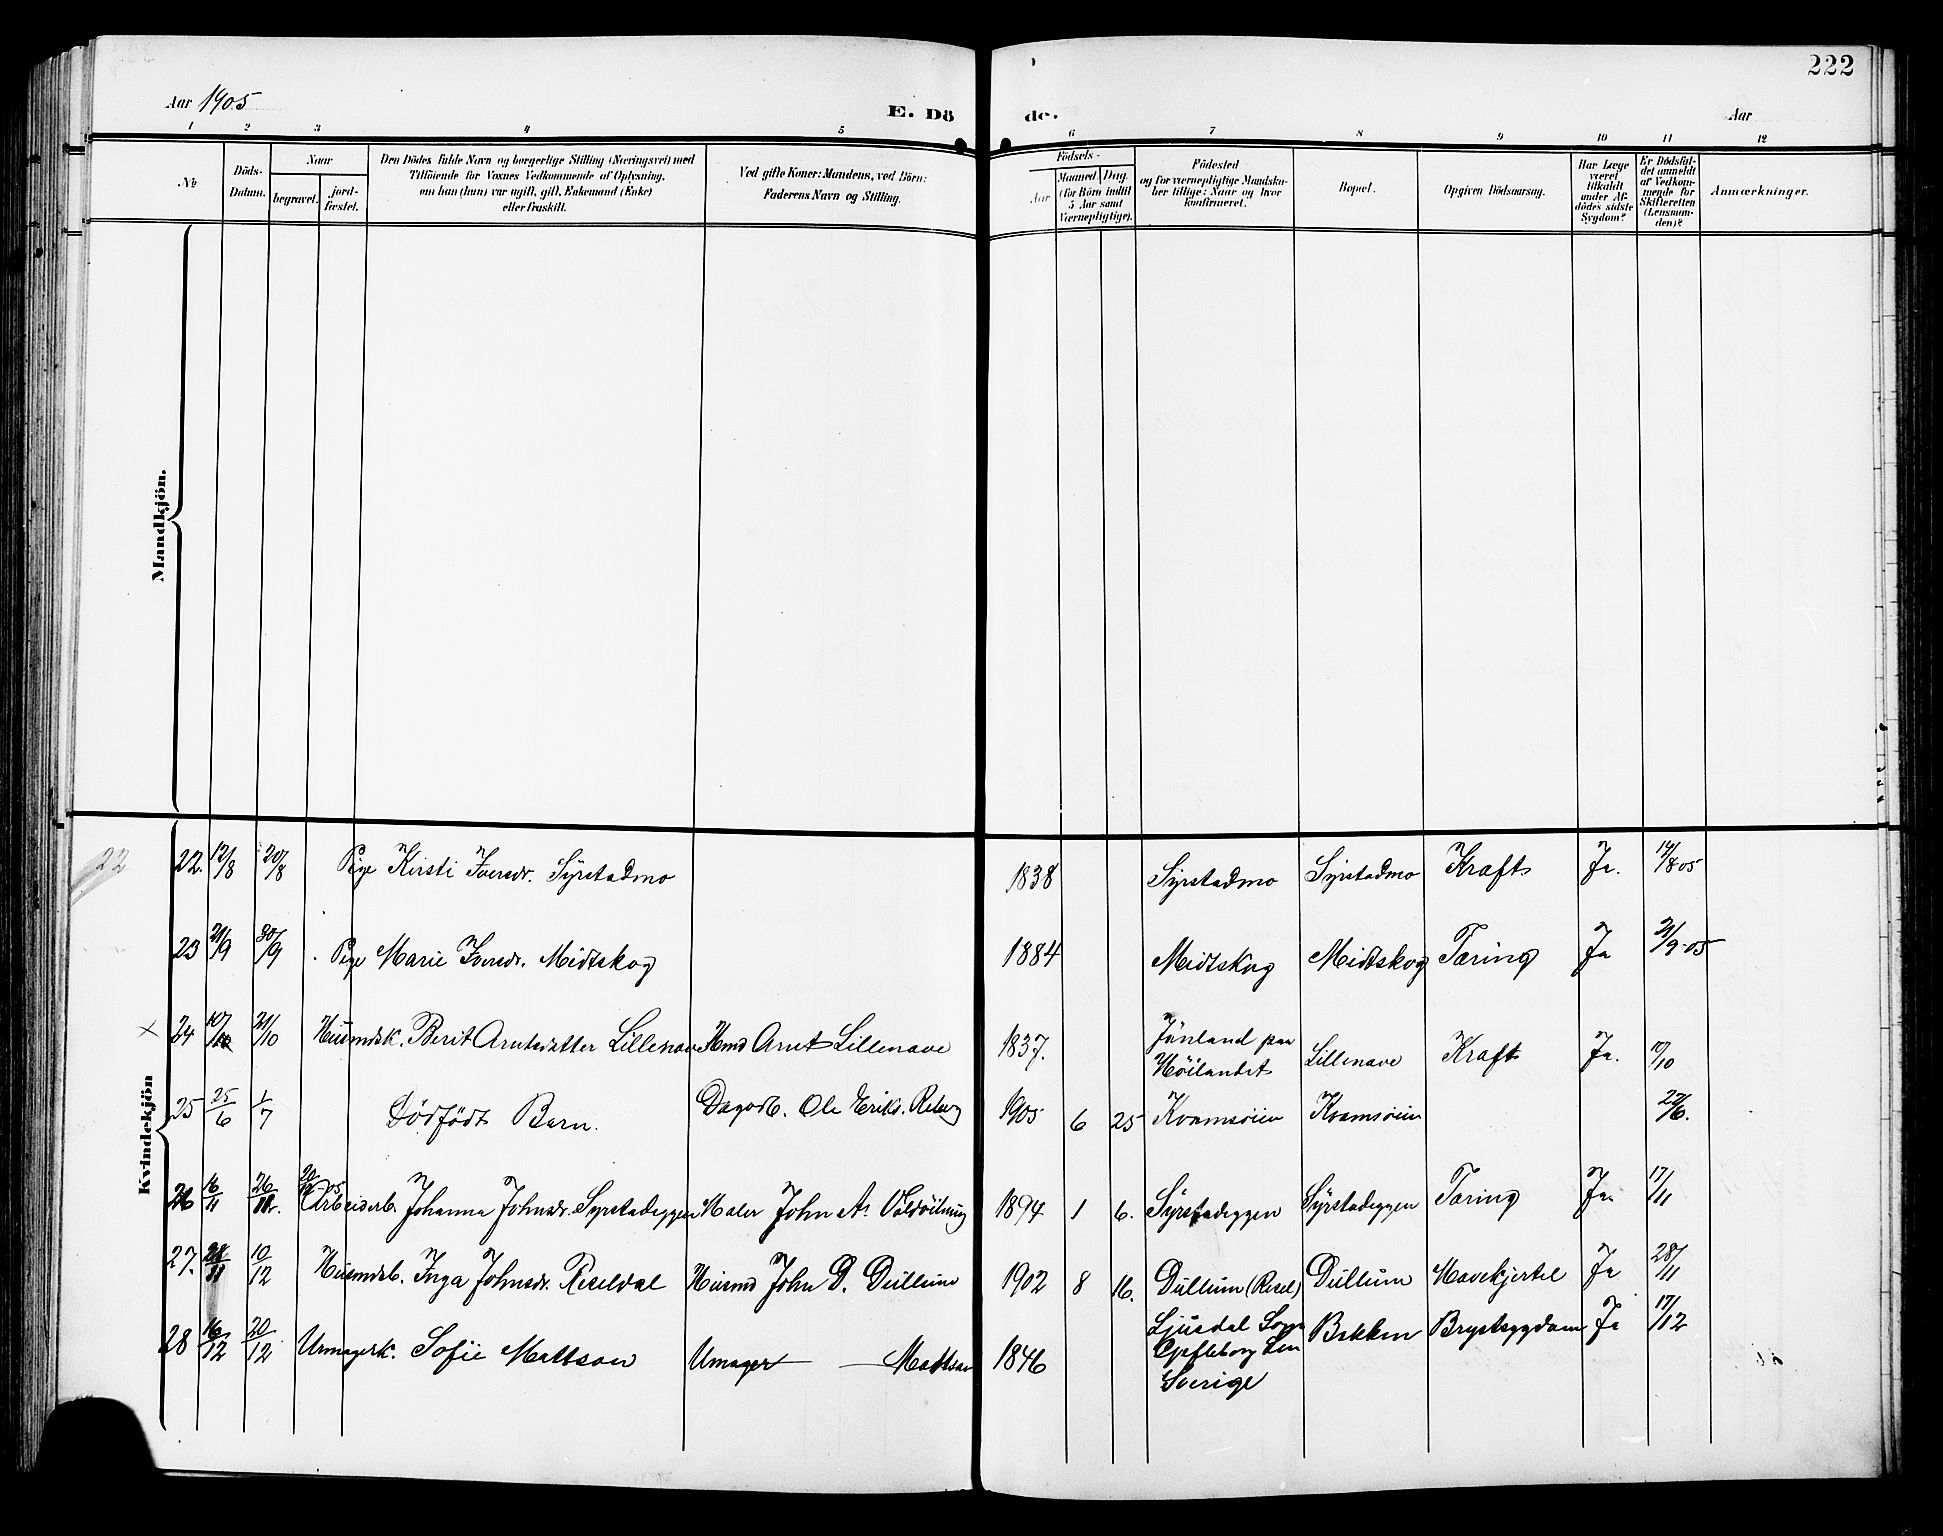 222
Aar 1905
E. Dö
de.
Aar
1 2 3 4 5 6 7 8 9 10 11 12
№
Döds-
Datum.
Naar
begravet.
jord-
fæstet.
Den Dödes fulde Navn og borgerlige Stilling (Næringsvei) med
Tilföiende for Voxnes Vedkommende af Oplysning,
om han (hun) var ugift, gift, Enkemand (Enke)
eller fraskilt.
Ved gifte Koner: Mandens, ved Börn:
Faderens Navn og Stilling.
Födsels-
Aar
Maaned.
Dag.
(for Börn indtil
5 Aar samt
Værnepligtige).
Födested
og for værnepligtige Mandska-
ber tillige: Naar og hvor
konfirmeret.
Bopæl.
Opgiven Dödsaarsag.
Har Læge
været
tilkaldt
under Af-
dödes sidste
Sygdom?
Er Dödsfal-
det anmeldt
af Vedkom-
mende for
Skifteretten
(Lensman-
den)?
Anmærkninger.
Mandkjön.
Kvindekjön
22
22. 12/8 20/8 Pige Kirsti Iversdr. Syrstadmo 1838 Syrstadmo Syrstadmo Kræft Ja. 14/8 05
23 21/9 30/9 Pige Marie Iversdr. Midtskog 1884 Midtskog Midtskog Tæring Ja 21/9-05
x 24 10/10 21/10 Husmdsk. Berit Arntsdatter Lillenave Hmd Arnt Lillenave 1837. paa
Höilandet Lillenave Kræft Ja. 10/10
25 25/6 1/7 Dödfödt Barn. Dagarb. Ole Eriks. 1905 6 25 Kvamsöien Kvamsöien 27/6.
26 16/11 26/11 Arbeiderb. Johanna Johnsdr. Syrstadeggen Maler John A. 1894 1 6. Syrstadeggen Syrstadeggen Tæring Ja. 17/11
27. 28/11 10/12 Husmdsb. Inga Johnsdr. Reseldal Husmd John D. Dullum 1902 8 16. Dullum (Resel) Dullum Mavekjertel Ja 28/11
28 16/12 20/12 Urmagerk. Sofie Mattson Urmager — Mattson 1846 Ljusdal Sogn
Len
Sverige Bakken Brystsygdom Ja 17/12